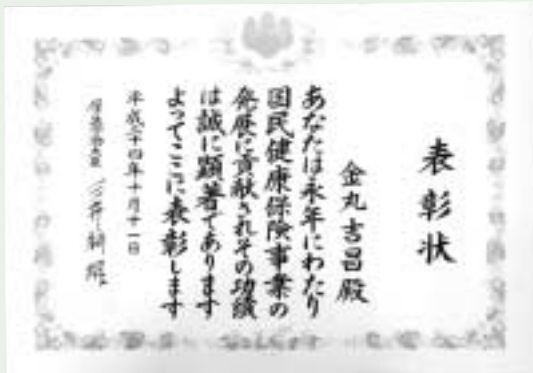 表彰状
金丸吉昌殿
あなたは永年にわたり
国民健康保険事業の
発展に貢献されその功績
は誠に顕著であります
よってここに表彰します
平成二十四年十月十一日
厚生労働大臣 三井辨雄